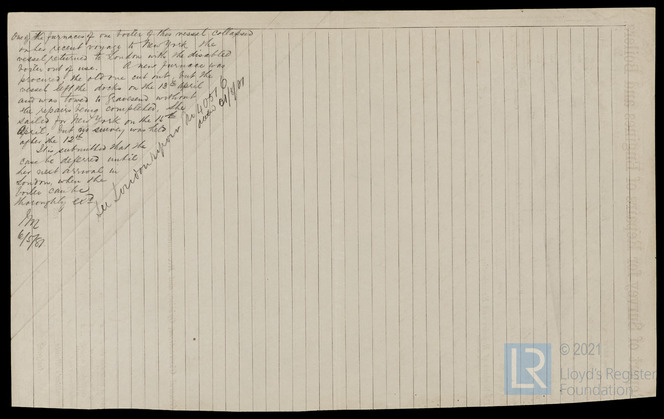 One of the furnaces of one boiler of this vessel collapsed
on her recent voyage to New York the
vessel returned to London with the disabled
boiler out of use. A new furnace was
procured, the old one cut out, but the
vessel left the docks on the 13th April
and was towed to Gravesend without
the repairs being completed, she
sailed for New York on the 15th
April, but no survey was held
after the 12th
It is submitted that the
case be deferred until
her next arrival in
London, when the
boiler can be
thoroughly exd
6/5/81
See London report No 40516
© 2021
Lloyd's Register
Foundation
LR